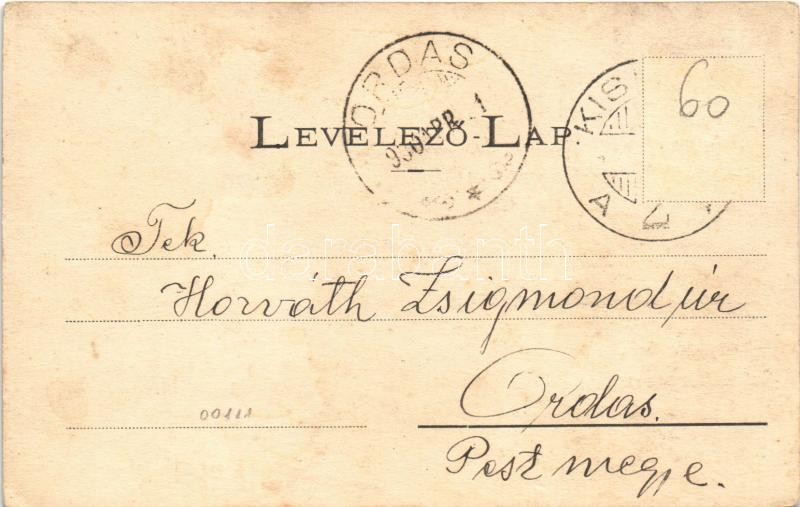 ORDAS
APR. 1
KIS
60
LEVELEZŐ-LAP.
A Z A
Tek.
Horváth Zsigmond úr
Ordas.
Pest megye.
00111
darabanth